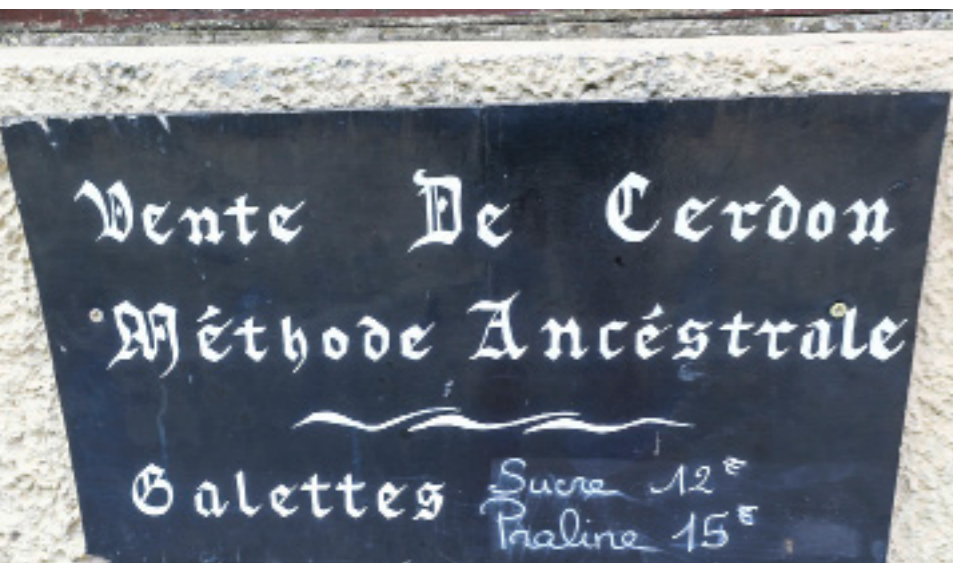 Vente De Cerdon
Méthode Ancéstrale
Galettes Sucre 12€
Praline 15€